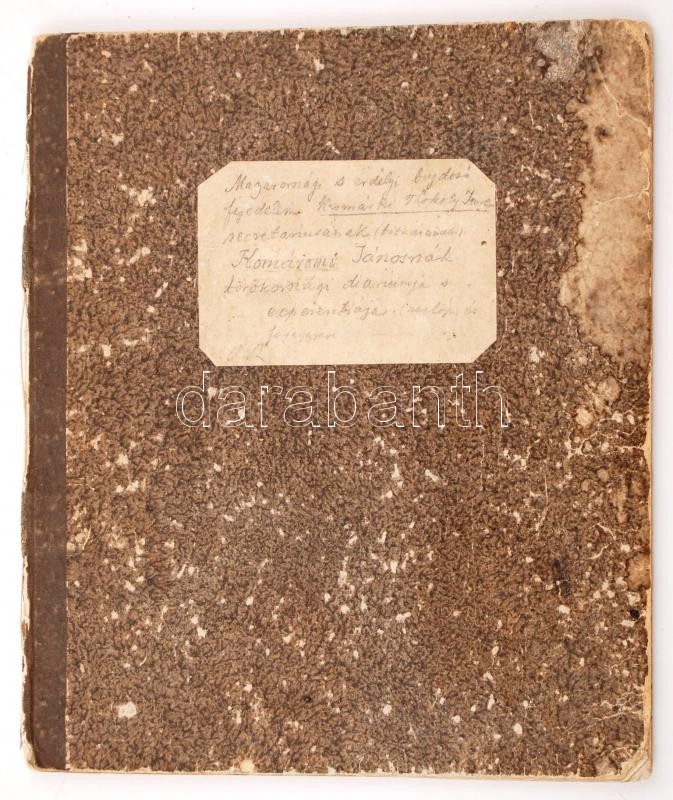 Magarországi s erdélyi bujdosó
fejedelem Késmárki Thököly Imre
secretariusának (titkárának)
Komáromi Jánosnak
törökországi diáriumja s
experientiája. (napló) és
darabanth